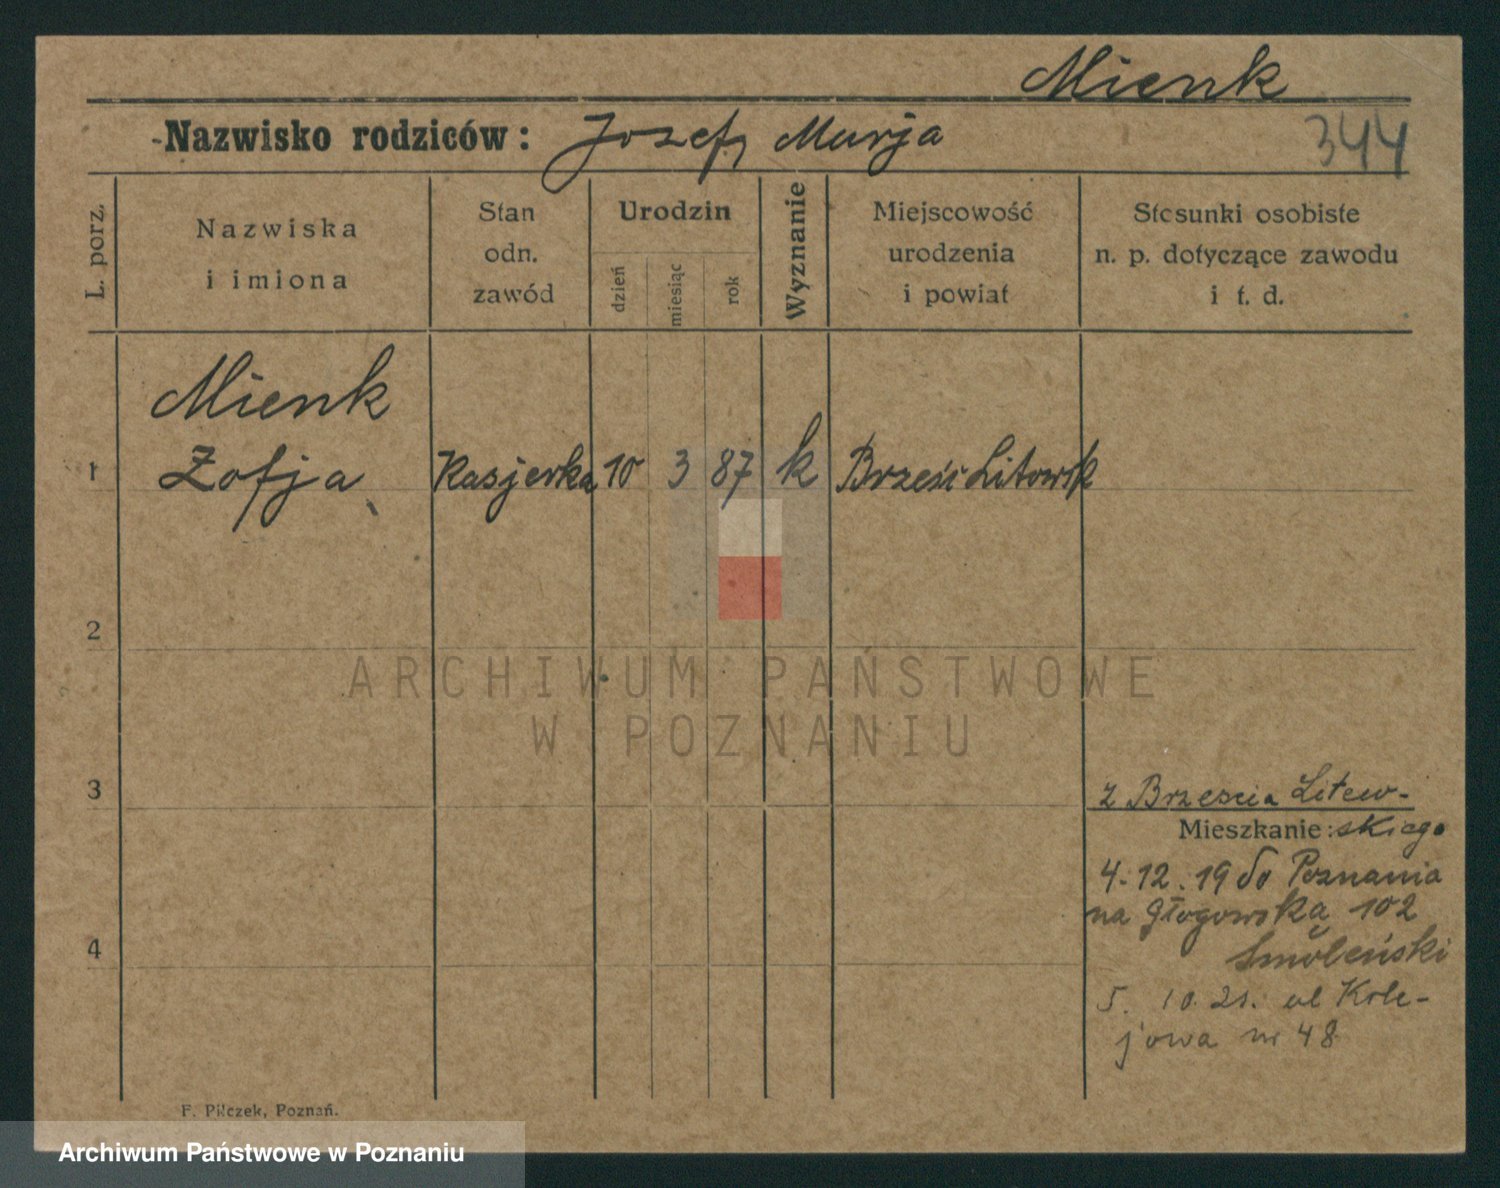 Mienk
Nazwisko rodziców: Jozef, Marja
344
L. porz.
Nazwiska
i imiona
Stan
odn.
zawód
Urodzin
dzień
miesiąc
rok
Wyznanie
Miejscowość
urodzenia
i powiat
Stosunki osobiste
n. p. dotyczące zawodu
i t. d.
Mienk
1 Zofja Kasjerka 10 3 87 k Brześć Litowsk
2
ARCHIWUM PAŃSTWOWE
W POZNANIU
3
z Brzescia Litew-
Mieszkanie: skiego
4. 12. 19 do Poznania
na Głogowską 102
4
Smoleński
5. 10. 21. ul Kole-
jowa nr 48
F. Pilczek, Poznań.
Archiwum Państwowe w Poznaniu